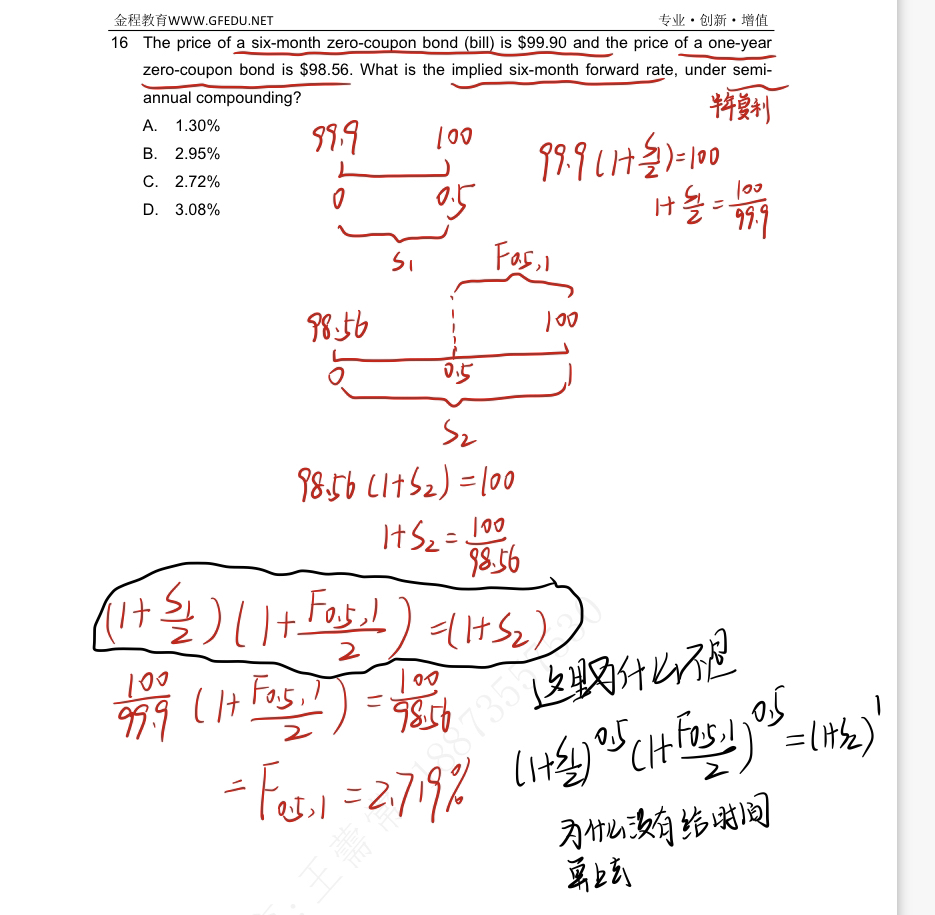 金程教育WWW.GFEDU.NET 专业・创新・增值
16 The price of a six-month zero-coupon bond (bill) is $99.90 and the price of a one-year
zero-coupon bond is $98.56. What is the implied six-month forward rate, under semi-
annual compounding?
半年复利
A. 1.30%
B. 2.95%
C. 2.72%
D. 3.08%
99.9 100
0 0.5
S1
99.9(1+S1/2)=100
1+S1/2=100/99.9
F0.5,1
98.56 100
0 0.5 1
S2
98.56(1+S2)=100
1+S2=100/98.56
(1+S1/2)(1+F0.5,1/2)=(1+S2)
100/99.9(1+F0.5,1/2)=100/98.56
=F0.5,1=2.719%
这里为什么不是
(1+S1/2)^0.5(1+F0.5,1/2)^0.5=(1+S2)^1
为什么没有给时间
算上去